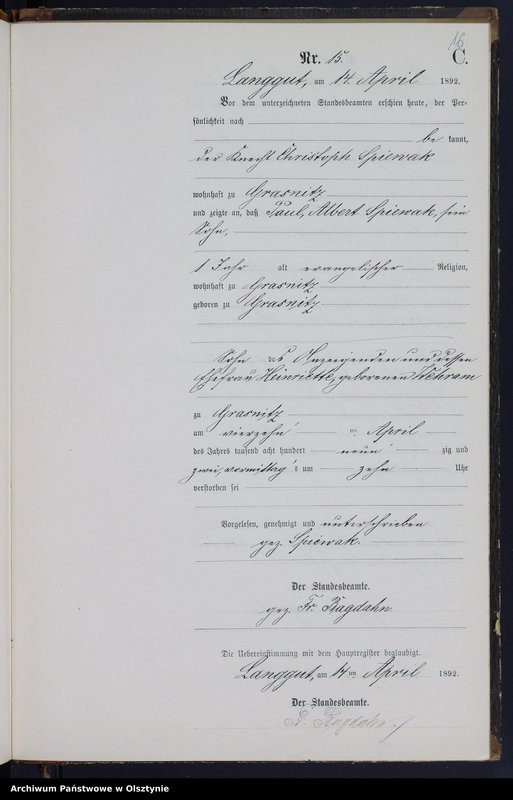 16
Nr. 15.
C.
Langgut, am 14. April 1892.
Vor dem unterzeichneten Standesbeamten erschien heute, der Per-
sönlichkeit nach
be kannt,
der Knecht Christoph Spiewak
wohnhaft zu Grasnitz
und zeigte an, daß Paul, Albert Spiewak, sein
Sohn,
1 Jahr alt evangelischer Religion,
wohnhaft zu Grasnitz
geboren zu Grasnitz
Sohn des Anzeigenden und dessen
Ehefrau Heinriette, geborenen Wehram
zu Grasnitz
am vierzehn ten April
des Jahres tausend acht hundert neun zig und
zwei, vormittag s um zehn Uhr
verstorben sei
Vorgelesen, genehmigt und unterschrieben
gez. Spiewak.
Der Standesbeamte.
gez. Fr. Bagdahn.
Die Uebereinstimmung mit dem Hauptregister beglaubigt.
Langgut, am 14 ten April 1892.
Der Standesbeamte.
Fr. Bagdahn
Archiwum Państwowe w Olsztynie